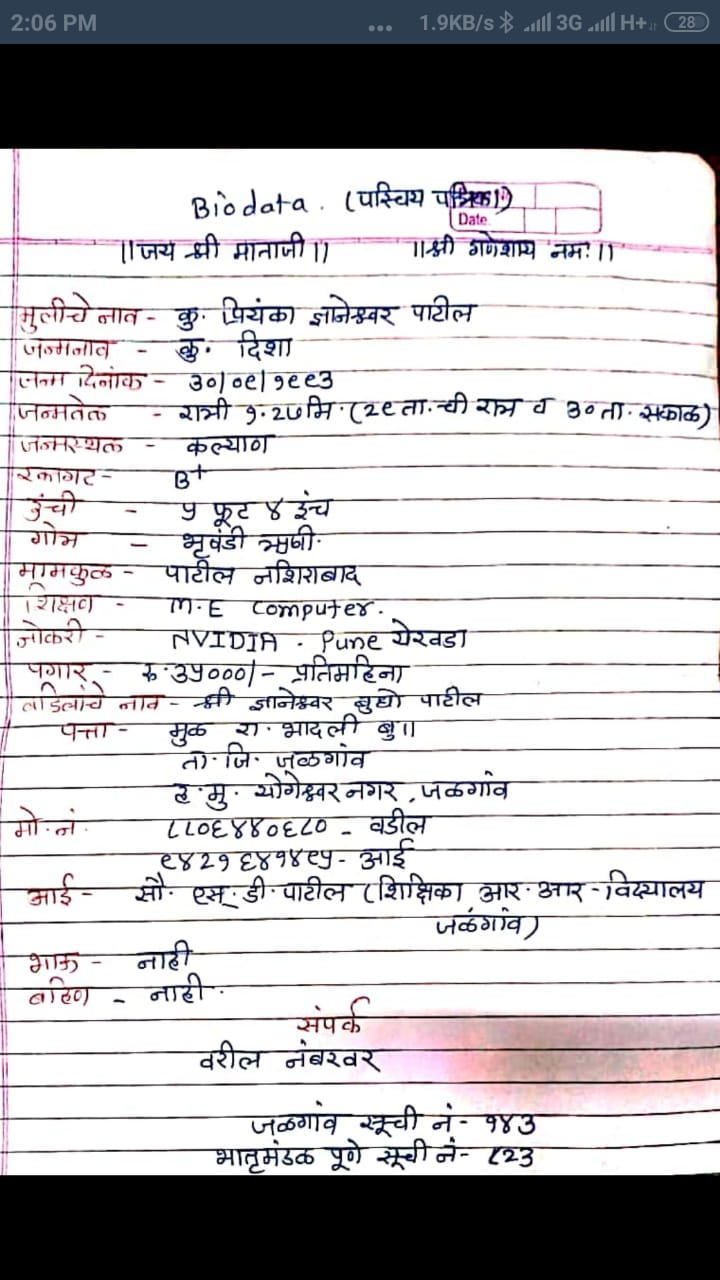 2:06 PM ... 1.9KB/s 3G H+ 28
Biodata. (परिचय पत्रिका)
Date
||जय श्री माताजी|| ||श्री गणेशाय नमः||
मुलीचे नाव - कु. प्रियंका ज्ञानेश्वर पाटील
जन्मनाव - कु. दिशा
जन्म दिनांक - ३०/०९/१९९३
जन्मवेळ - रात्री १.२७मि.(२९ता.ची रात्र व ३०ता. सकाळ)
जन्मस्थळ - कल्याण
रक्तगट - B+
उंची - ५ फूट ४ इंच
गोत्र - भृषंडी ऋषी.
मामकुळ - पाटील नशिराबाद
शिक्षण - M.E Computer.
नोकरी - NVIDIA. Pune येरवडा
पगार - रु.३५०००/- प्रतिमहिना
वडिलांचे नाव - श्री ज्ञानेश्वर बुधो पाटील
पत्ता - मुळ रा. भादली बु॥
ता. जि. जळगांव
ह.मु. योगेश्वर नगर, जळगांव
मो.नं. ८८०६४४०६८० - वडील
९४२१६४१४९५ - आई
आई - सौ. एस्.डी.पाटील (शिक्षिका आर.आर-विद्यालय
जळगांव)
भाऊ - नाही
बहिण - नाही.
संपर्क
वरील नंबरवर
जळगांव सूची नं - १४३
भातृमंडळ पूणे सूची नं - ८२३